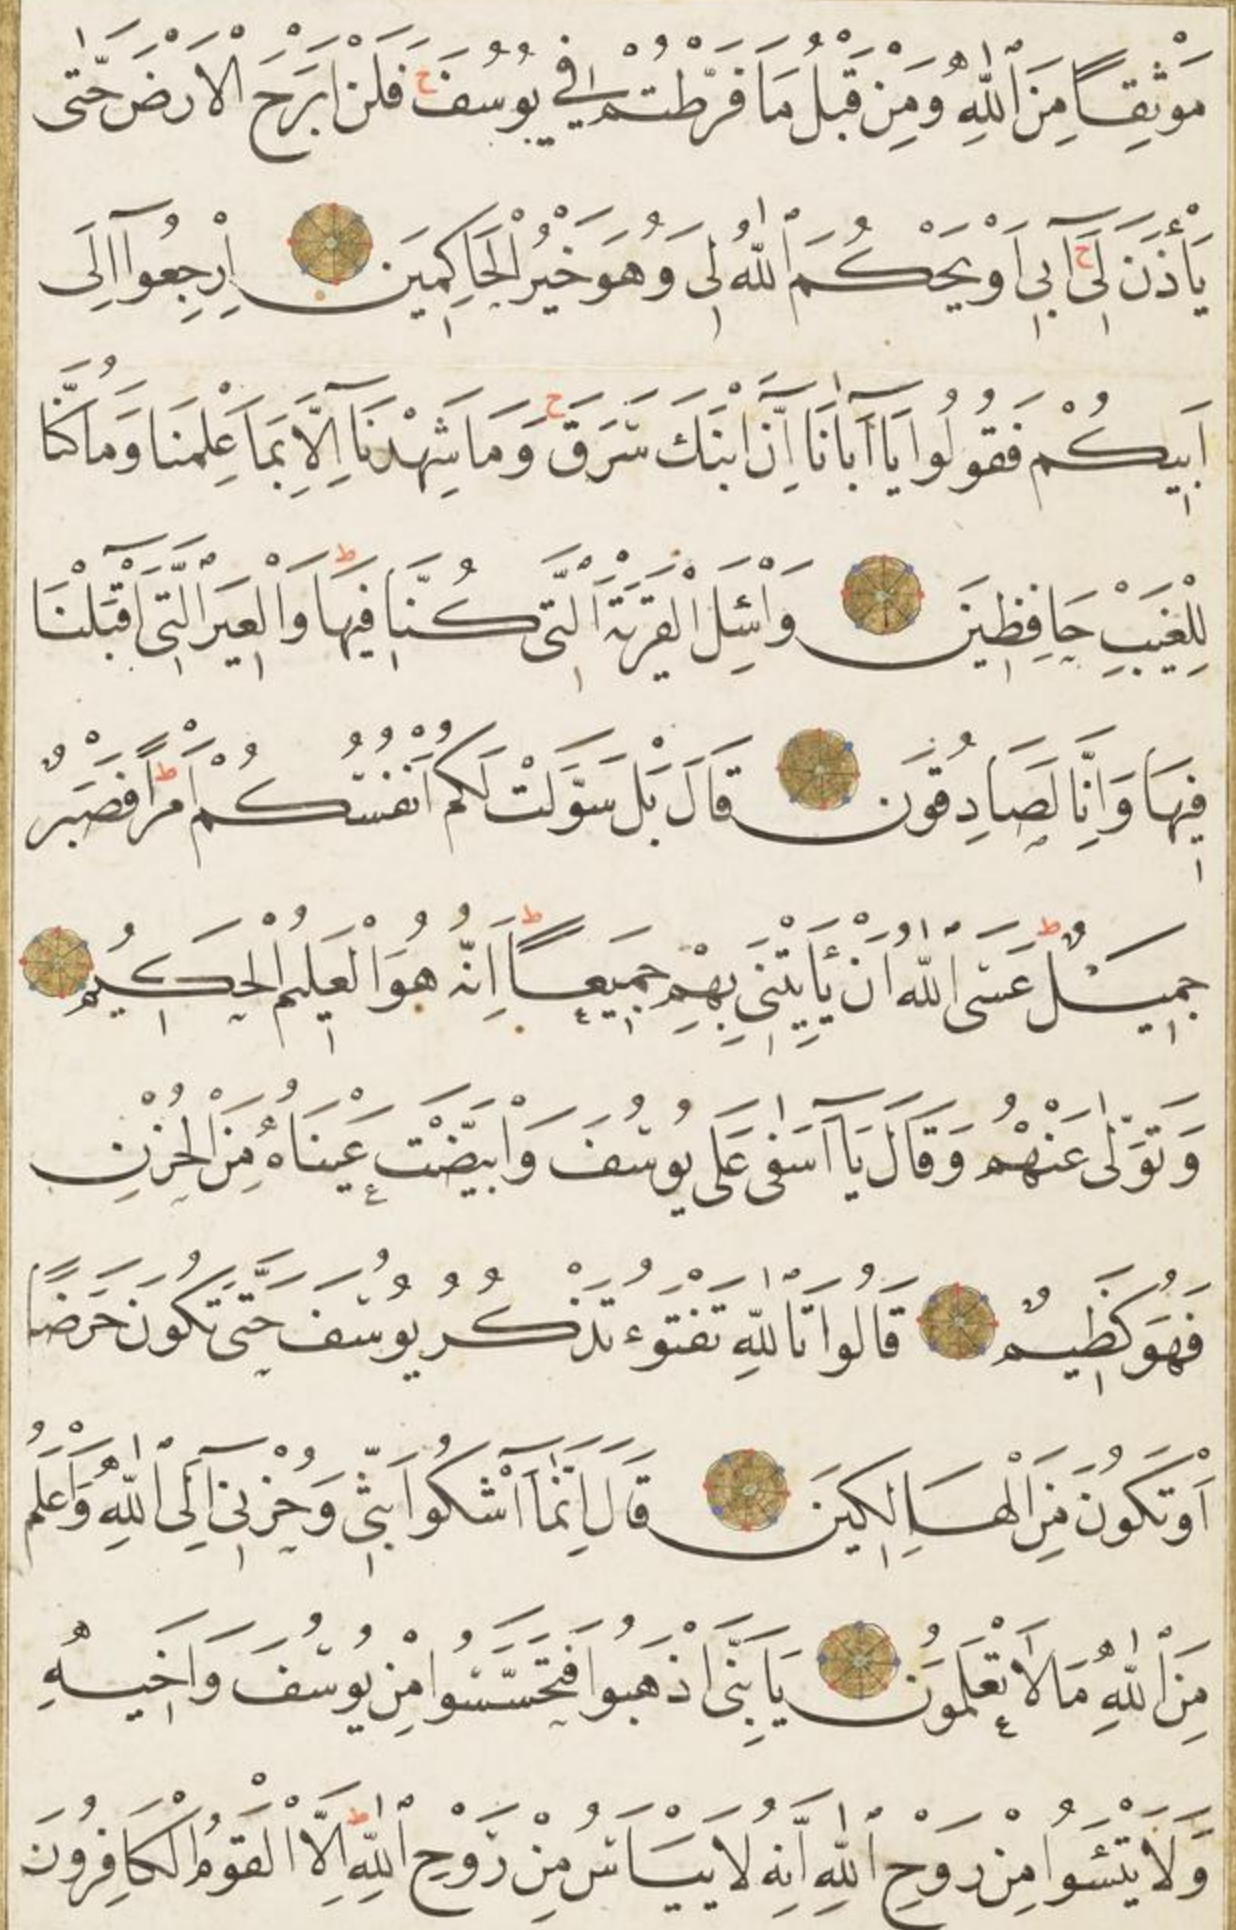 مَوْثِقًا مِنَ اللّٰهِ وَمِنْ قَبْلُ مَا فَرَّطْتُمْ فِي يُوسُفَ ح فَلَنْ اَبْرَحَ الْاَرْضَ حَتّٰى
يَأْذَنَ لِي ح اَبِي اَوْ يَحْكُمَ اللّٰهُ لِي وَهُوَ خَيْرُ الْحَاكِمِينَ اِرْجِعُوا اِلَى
اَبِيكُمْ فَقُولُوا يَا اَبَانَا اِنَّ ابْنَكَ سَرَقَ ح وَمَا شَهِدْنَا اِلَّا بِمَا عَلِمْنَا وَمَا كُنَّا
لِلْغَيْبِ حَافِظِينَ وَاسْئَلِ الْقَرْيَةَ الَّتِي كُنَّا فِيهَا ط وَالْعِيرَ الَّتِي اَقْبَلْنَا
فِيهَا وَاِنَّا لَصَادِقُونَ قَالَ بَلْ سَوَّلَتْ لَكُمْ اَنْفُسُكُمْ اَمْرًا ط فَصَبْرٌ
جَمِيلٌ ط عَسَى اللّٰهُ اَنْ يَأْتِيَنِي بِهِمْ جَمِيعًا ط اِنَّهُ هُوَ الْعَلِيمُ الْحَكِيمُ
وَتَوَلّٰى عَنْهُمْ وَقَالَ يَا اَسَفٰى عَلٰى يُوسُفَ وَابْيَضَّتْ عَيْنَاهُ مِنَ الْحُزْنِ
فَهُوَ كَظِيمٌ قَالُوا تَاللّٰهِ تَفْتَؤُ تَذْكُرُ يُوسُفَ حَتّٰى تَكُونَ حَرَضًا
اَوْ تَكُونَ مِنَ الْهَالِكِينَ قَالَ اِنَّمَا اَشْكُوا بَثِّي وَحُزْنِي اِلَى اللّٰهِ وَاَعْلَمُ
مِنَ اللّٰهِ مَا لَا تَعْلَمُونَ يَا بَنِيَّ اذْهَبُوا فَتَحَسَّسُوا مِنْ يُوسُفَ وَاَخِيهِ
وَلَا تَيْئَسُوا مِنْ رَوْحِ اللّٰهِ اِنَّهُ لَا يَيْاَسُ مِنْ رَوْحِ اللّٰهِ ط اِلَّا الْقَوْمُ الْكَافِرُونَ